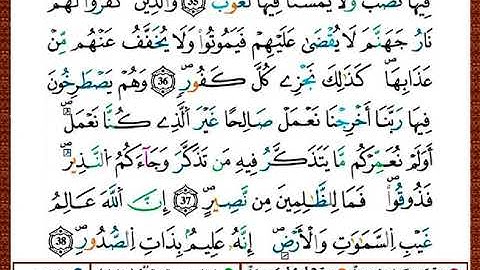 فِيهَا نَصَبٌ وَلَا يَمَسُّنَا فِيهَا لُغُوبٌ ۝35 وَالَّذِينَ كَفَرُوا لَهُمْ
نَارُ جَهَنَّمَ لَا يُقْضَىٰ عَلَيْهِمْ فَيَمُوتُوا وَلَا يُخَفَّفُ عَنْهُم مِّنْ
عَذَابِهَا ۚ كَذَٰلِكَ نَجْزِي كُلَّ كَفُورٍ ۝36 وَهُمْ يَصْطَرِخُونَ
فِيهَا رَبَّنَا أَخْرِجْنَا نَعْمَلْ صَالِحًا غَيْرَ الَّذِي كُنَّا نَعْمَلُ ۚ
أَوَلَمْ نُعَمِّرْكُم مَّا يَتَذَكَّرُ فِيهِ مَن تَذَكَّرَ وَجَاءَكُمُ النَّذِيرُ ۖ
فَذُوقُوا فَمَا لِلظَّالِمِينَ مِن نَّصِيرٍ ۝37 إِنَّ اللَّهَ عَالِمُ
غَيْبِ السَّمَاوَاتِ وَالْأَرْضِ ۚ إِنَّهُ عَلِيمٌ بِذَاتِ الصُّدُورِ ۝38